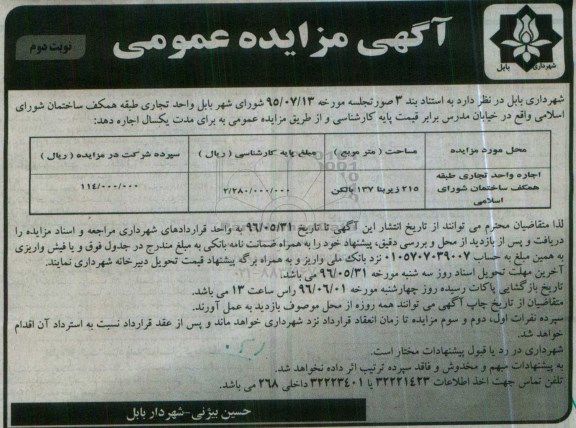 آگهی مزایده عمومی
نوبت دوم
شهرداری بابل
شهرداری بابل در نظر دارد به استناد بند ۳ صورتجلسه مورخه ۹۵/۰۷/۱۳ شورای شهر بابل واحد تجاری طبقه همکف ساختمان شورای
اسلامی واقع در خیابان مدرس برابر قیمت پایه کارشناسی و از طریق مزایده عمومی به برای مدت یکسال اجاره دهد:
محل مورد مزایده
مساحت ( متر مربع )
مبلغ پایه کارشناسی ( ریال )
سپرده شرکت در مزایده ( ریال )
اجاره واحد تجاری طبقه
همکف ساختمان شورای
اسلامی
۲۱۵ زیربنا ۱۳۷ بالکن
۲/۲۸۰/۰۰۰/۰۰۰
۱۱۴/۰۰۰/۰۰۰
لذا متقاضیان محترم می توانند از تاریخ انتشار این آگهی تا تاریخ ۹۶/۰۵/۳۱ به واحد قراردادهای شهرداری مراجعه و اسناد مزایده را
دریافت و پس از بازدید از محل و بررسی دقیق، پیشنهاد خود را به همراه ضمانت نامه بانکی به مبلغ مندرج در جدول فوق و یا فیش واریزی
به همین مبلغ به حساب ۰۱۰۵۷۰۷۰۳۹۰۰۷ نزد بانک ملی واریز و به همراه برگه پیشنهاد قیمت تحویل دبیرخانه شهرداری نمایند.
آخرین مهلت تحویل اسناد روز سه شنبه مورخه ۹۶/۰۵/۳۱ می باشد.
تاریخ بازگشایی پاکات رسیده روز چهارشنبه مورخه ۹۶/۰۶/۰۱ راس ساعت ۱۳ می باشد.
متقاضیان از تاریخ چاپ آگهی می توانند همه روزه از محل موصوف بازدید به عمل آورند.
سپرده نفرات اول، دوم و سوم مزایده تا زمان انعقاد قرارداد نزد شهرداری خواهد ماند و پس از عقد قرارداد نسبت به استرداد آن اقدام
خواهد شد.
شهرداری در رد یا قبول پیشنهادات مختار است.
به پیشنهادات مبهم و مخدوش و فاقد سپرده ترتیب اثر داده نخواهد شد.
تلفن تماس جهت اخذ اطلاعات ۳۲۲۲۱۴۲۳ یا ۳۲۲۲۳۴۰۱ داخلی ۲۶۸ می باشد.
حسین بیژنی-شهردار بابل